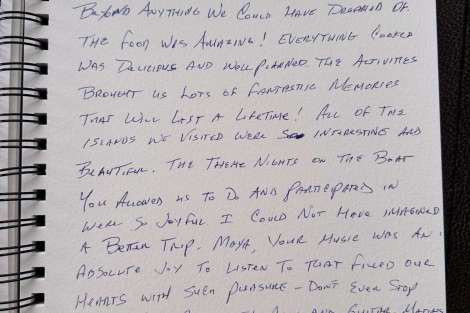 Beyond Anything We Could Have Dreamed Of.
The Food Was Amazing! Everything Cooked
Was Delicious And Well Planned. The Activities
Brought Us Lots Of Fantastic Memories
That Will Last A Lifetime! All Of The
Islands We Visited Were So Interesting And
Beautiful. The Theme Nights On The Boat
You Allowed Us To Do And Participated In
Were So Joyful I Could Not Have Imagined
A Better Trip. Maya, Your Music Was An
Absolute Joy To Listen To That Filled Our
Hearts With Such Pleasure – Don't Ever Stop
And Guitar.